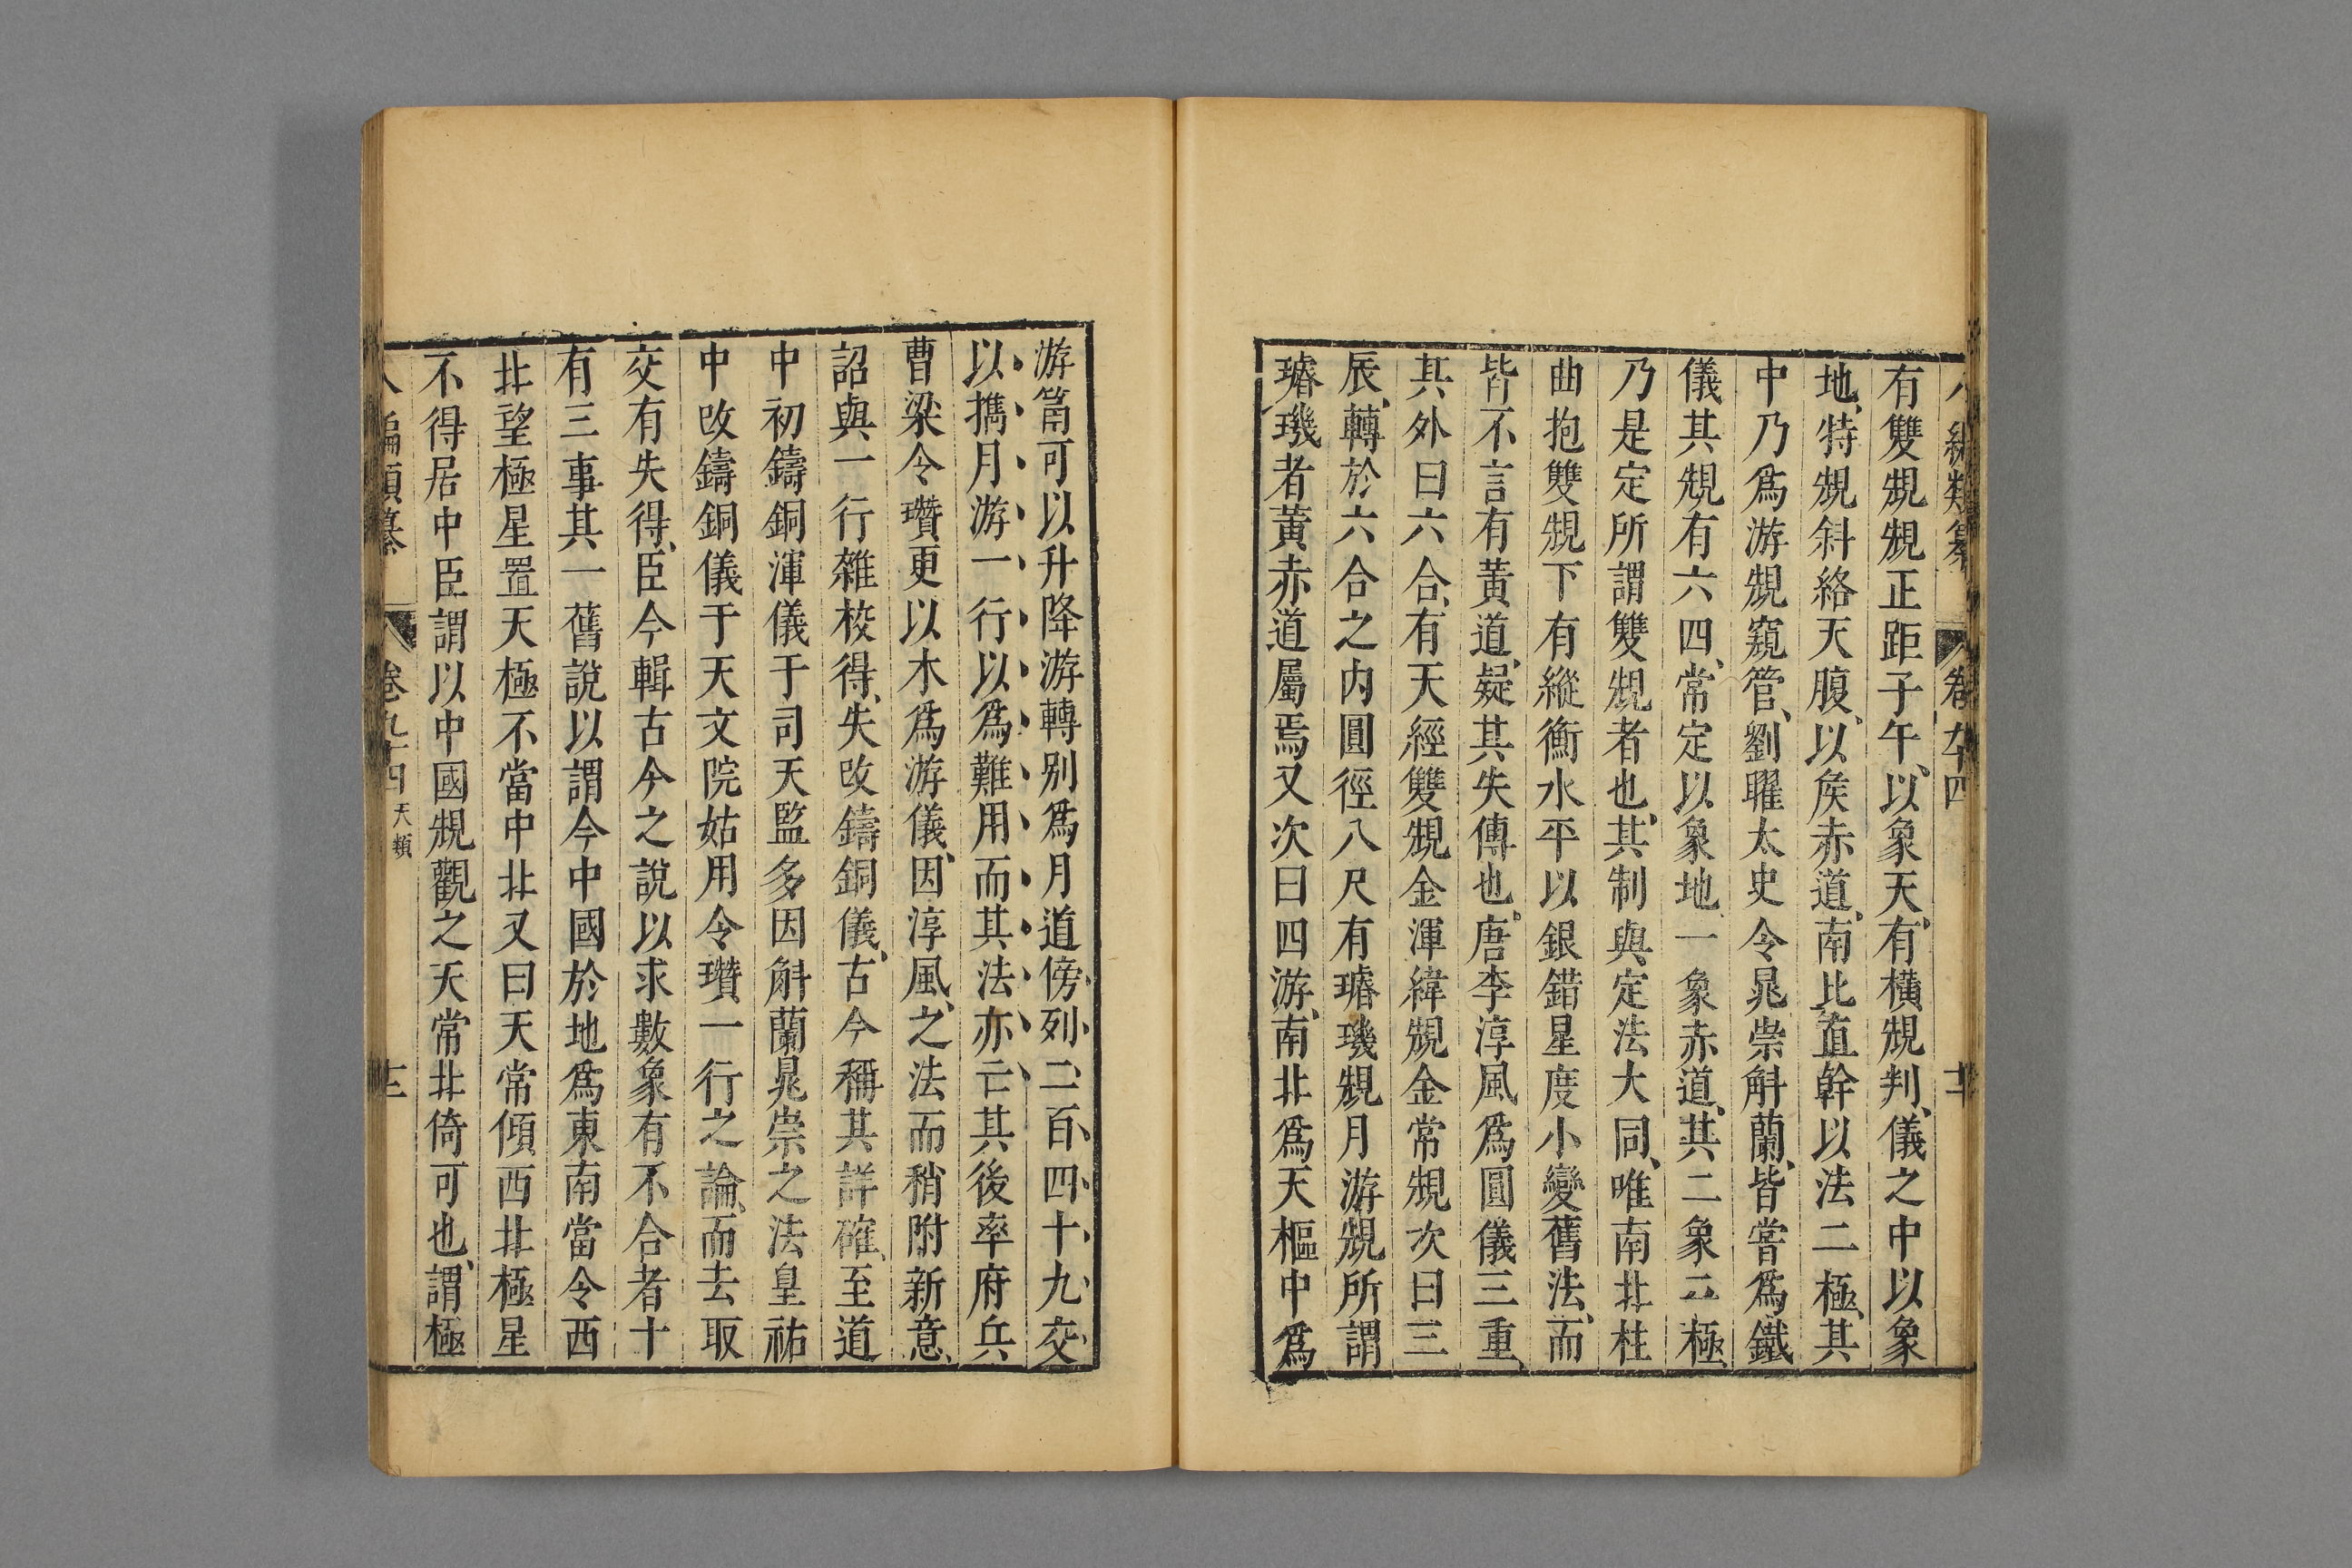 八編類纂 卷九十四 十二
有雙規規正距子午以象天有橫規判儀之中以象
地特規斜絡天腹以矦赤道南北置幹以法二極其
中乃爲游規窺管劉曜太史令晁崇斛蘭皆嘗爲鐵
儀其規有六四常定以象地一象赤道其二象二極
乃是定所謂雙規者也其制與定法大同唯南北柱
曲抱雙規下有縱衡水平以銀錯星度小變舊法而
皆不言有黃道疑其失傳也唐李淳風爲圓儀三重
其外曰六合有天經雙規金渾緯規金常規次曰三
辰轉於六合之內圓徑八尺有璿璣規月游規所謂
璿璣者黃赤道屬焉又次曰四游南北爲天樞中爲
游筩可以升降游轉别爲月道傍列二百四十九交
以攜月游一行以爲難用而其法亦亡其後率府兵
曹梁令瓚更以木爲游儀因淳風之法而稍附新意
詔與一行雜校得失改鑄銅儀古今稱其詳確至道
中初鑄銅渾儀于司天監多因斛蘭晁崇之法皇祐
中改鑄銅儀于天文院姑用令瓚一行之論而去取
交有失得臣今輯古今之說以求數象有不合者十
有三事其一舊說以謂今中國於地爲東南當令西
北望極星置天極不當中北又曰天常傾西北極星
不得居中臣謂以中國規觀之天常北倚可也謂極
八編類纂 卷九十四 天類 十三